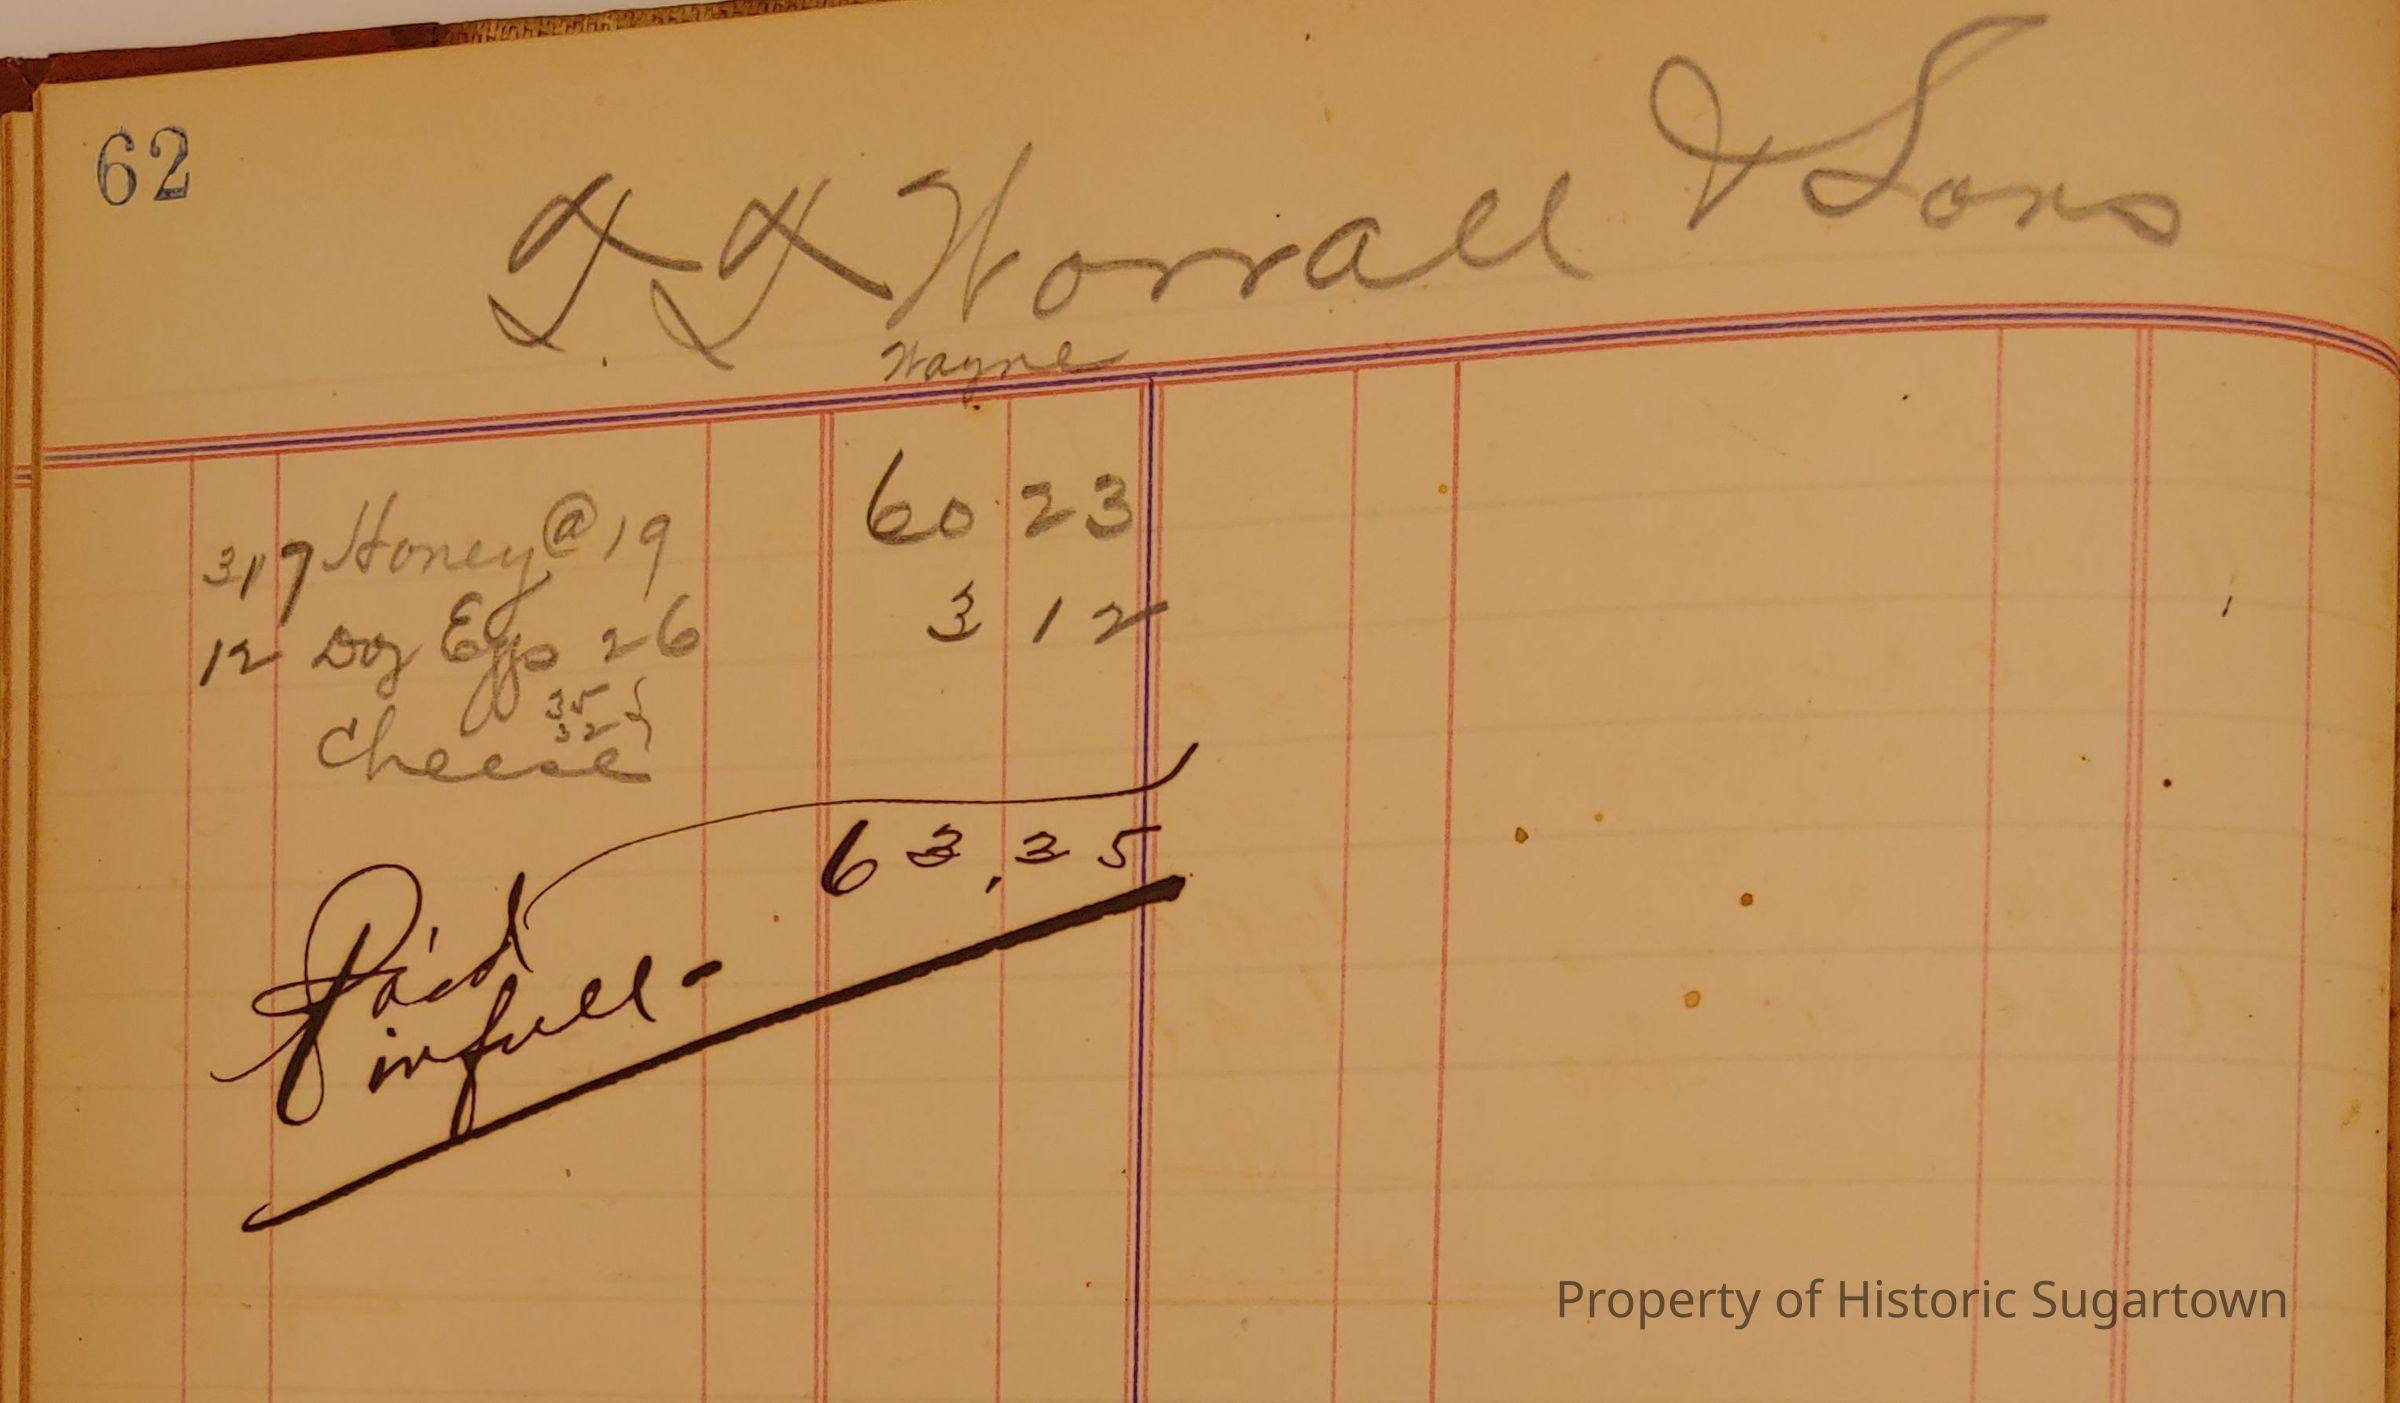 62
H. H. Worrall & Sons
Wayne
317 Honey @ 19 60 23
12 Doz Eggs 26 3 12
35
32 }
Cheese
63,35
Paid
in full -
Property of Historic Sugartown